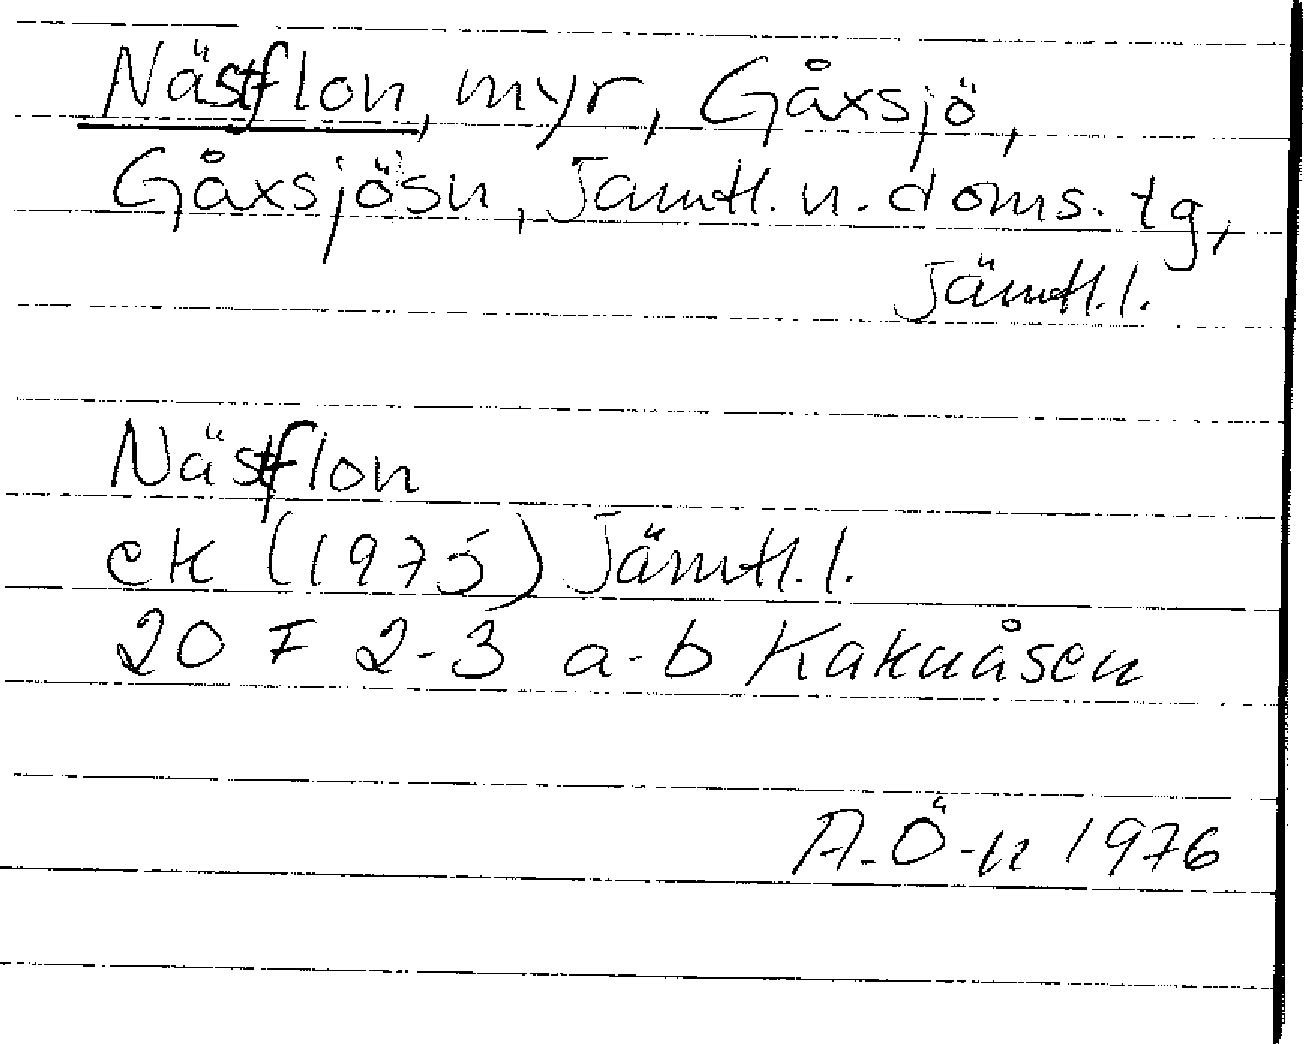 Nästflon, myr, Gåxsjö,
Gåxsjösn, Jämtl. n. doms. tg,
Jämtl. l.
Nästflon
ek (1975) Jämtl. l.
20 F 2-3 a-b Kaknåsen
A. Ö-n 1976